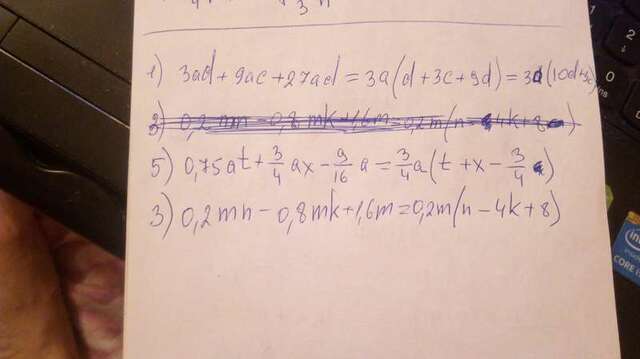 1) 3ad + 9ac + 27ad = 3a(d + 3c + 9d) = 3a(10d+3c
3) 0,2mn - 0,8mk + 1,6m = 0,2m(n - 4k + 8 )
5) 0,75at + 3/4 ax - 9/16 a = 3/4 a(t + x - 3/4 )
3) 0,2mn - 0,8mk + 1,6m = 0,2m(n - 4k + 8)
2
0
Ins
intel
CORE